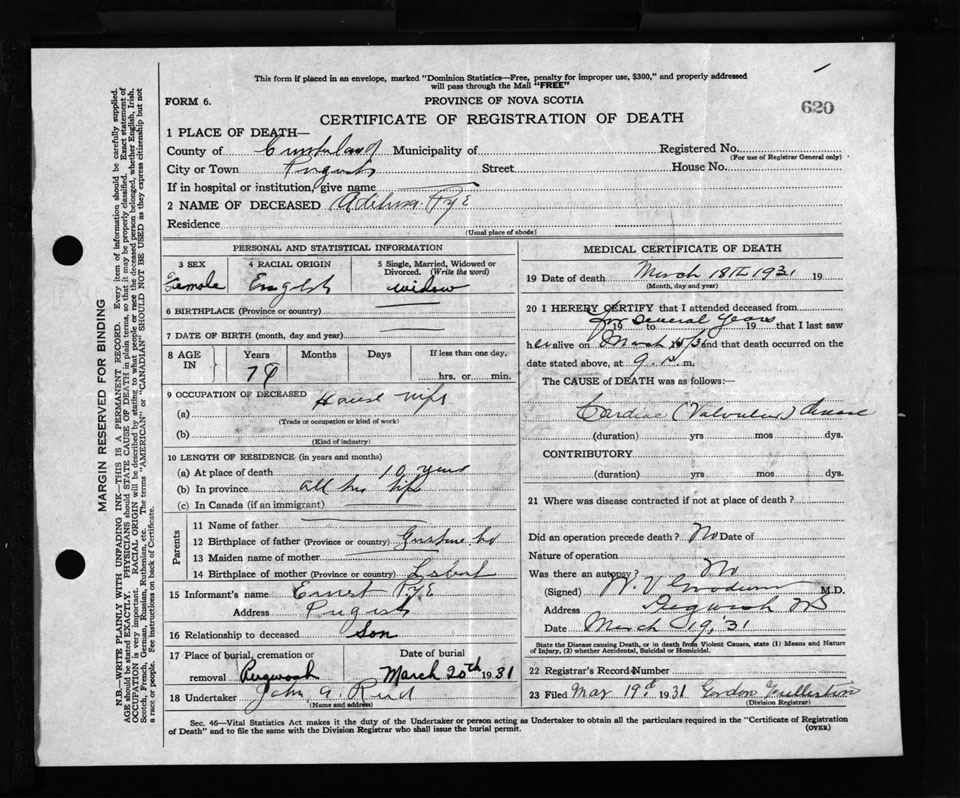 This form if placed in an envelope, marked "Dominion Statistics—Free, penalty for improper use, $300," and properly addressed
will pass through the Mail "FREE"
FORM 6. PROVINCE OF NOVA SCOTIA 620
CERTIFICATE OF REGISTRATION OF DEATH
1 PLACE OF DEATH—
County of Cumberland Municipality of Registered No.
(For use of Registrar General only)
City or Town Pugwash Street House No.
If in hospital or institution, give name
2 NAME OF DECEASED Pye
Residence
(Usual place of abode)
PERSONAL AND STATISTICAL INFORMATION
3 SEX 4 RACIAL ORIGIN 5 Single, Married, Widowed or
Divorced. (Write the word)
Female English widow
6 BIRTHPLACE (Province or country)
7 DATE OF BIRTH (month, day and year)
8 AGE IN Years Months Days If less than one day,
hrs. or min.
9 OCCUPATION OF DECEASED
(a) House wife
(Trade or occupation or kind of work)
(b)
(Kind of industry)
10 LENGTH OF RESIDENCE (in years and months)
(a) At place of death 10 years
(b) In province all his life
(c) In Canada (if an immigrant)
Parents
11 Name of father
12 Birthplace of father (Province or country)
13 Maiden name of mother
14 Birthplace of mother (Province or country)
15 Informant's name Ernest Pye
Address Pugwash
16 Relationship to deceased Son
17 Place of burial, cremation or Date of burial
removal Pugwash March 20th 1931
18 Undertaker John A. Reid
(Name and address)
MEDICAL CERTIFICATE OF DEATH
19 Date of death March 18th 1931 19
(Month, day and year)
20 I HEREBY CERTIFY that I attended deceased from
for several years
19 to 19 that I last saw
her alive on March /31 and that death occurred on the
date stated above, at 9. m.
The CAUSE of DEATH was as follows:—
Cardiac (Valvular) disease
(duration) yrs mos dys.
CONTRIBUTORY
(duration) yrs mos dys.
21 Where was disease contracted if not at place of death?
Did an operation precede death? No Date of
Nature of operation
Was there an autopsy? No
(Signed) Goodwin M.D.
Address Pugwash NS
Date March 19, '31
State the Disease causing Death, or in death from Violent Causes, state (1) Means and Nature
of Injury, (2) whether Accidental, Suicidal or Homicidal.
22 Registrar's Record Number
23 Filed Mar 19th 1931 Gordon Fullerton
(Division Registrar)
Sec. 46—Vital Statistics Act makes it the duty of the Undertaker or person acting as Undertaker to obtain all the particulars required in the "Certificate of Registration
of Death" and to file the same with the Division Registrar who shall issue the burial permit. (OVER)
MARGIN RESERVED FOR BINDING
N.B.—WRITE PLAINLY WITH UNFADING INK—THIS IS A PERMANENT RECORD. Every item of information should be carefully supplied.
AGE should be stated EXACTLY. PHYSICIANS should STATE CAUSE OF DEATH in plain terms, so that it may be properly classified. Exact statement of
OCCUPATION is very important. RACIAL ORIGIN will be described by stating to what people or race the deceased person belonged, whether English, Irish,
Scotch, French, German, Russian, Ruthenian, etc. The terms "AMERICAN" or "CANADIAN" SHOULD NOT BE USED as they express citizenship but not
a race or people. See instructions on back of Certificate.